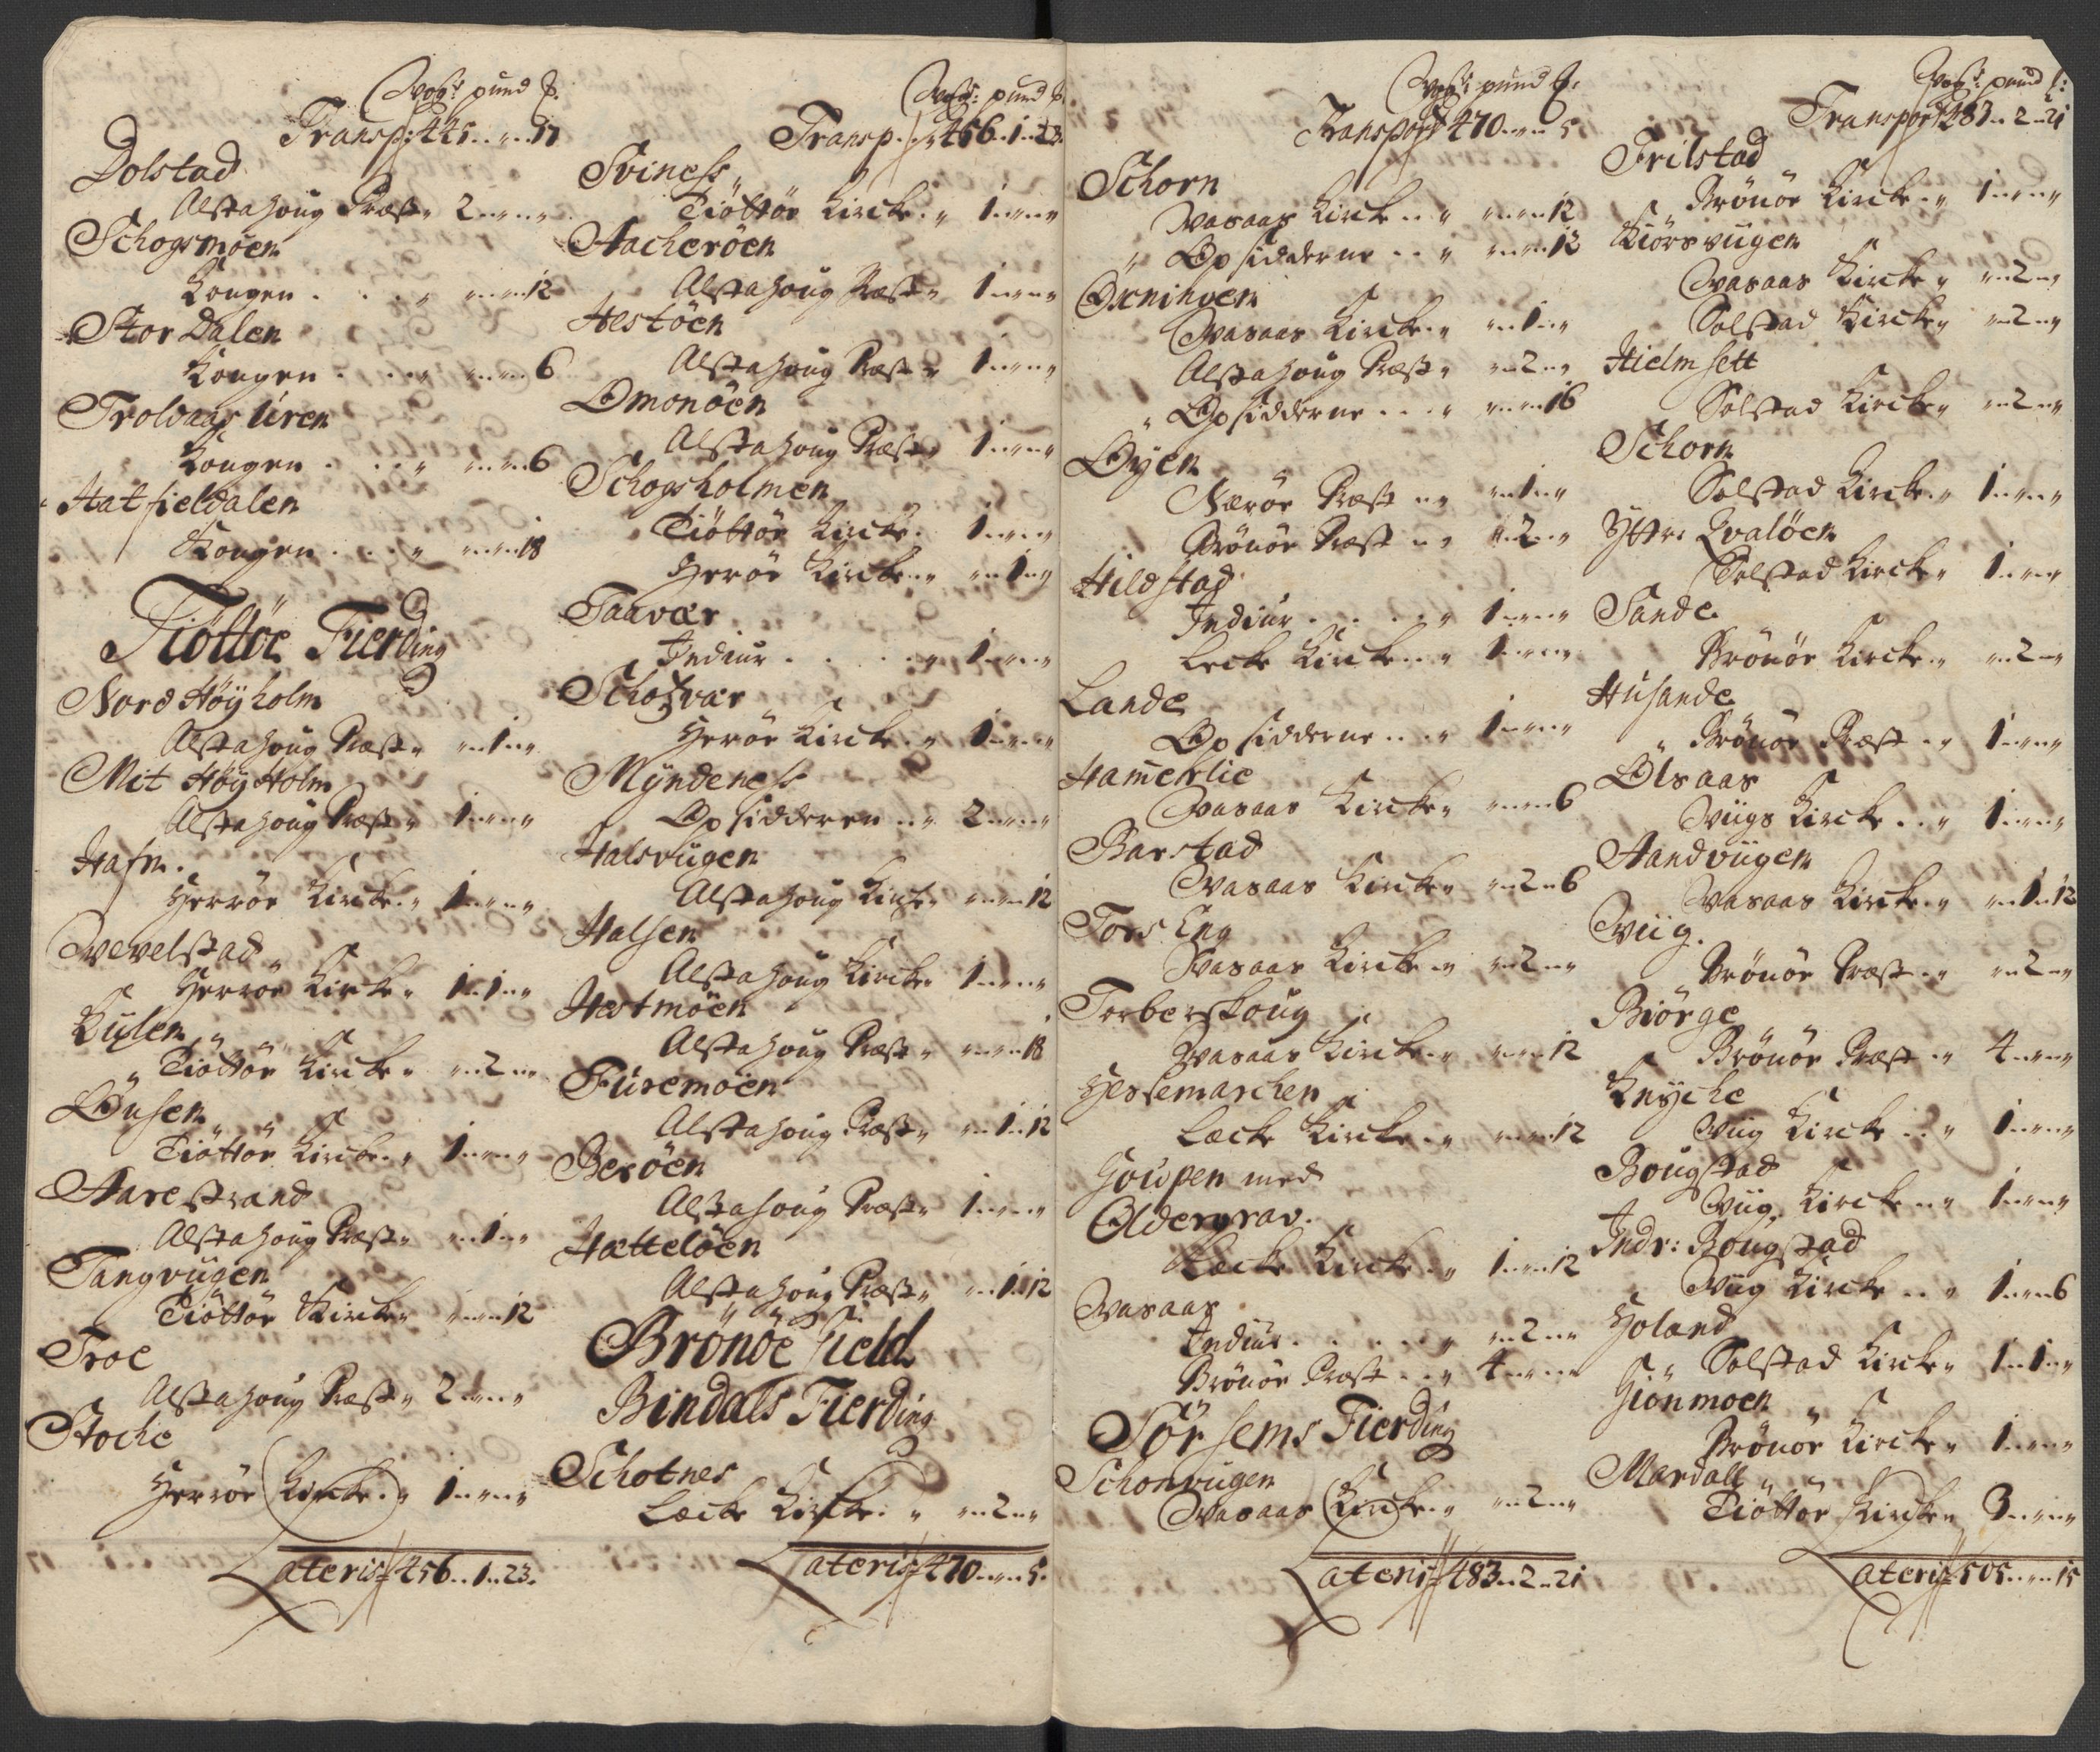 Wog: pund ℔.
Transp: 445 „ „ 17
Dolstad
Alstahoug Præst „ 2 „ „
Schogsmoen
Kongen . . . „ „ „ 12
Stor Dalen
Kongen . . . „ „ „ 6
Troldaas Uren
Kongen . . . „ „ „ 6
Hatfieldalen
Kongen . . . „ „ „ 18
Tiøttøe Fierding
Nord Høyholm
Alstahoug Præst „ „ 1 „
Mit Høy Holm
Alstahoug Præst „ 1 „ „
Hafn.
Herröe Kircke „ 1 „ „
Wevelstad
Herröe Kircke „ 1 „ 1 „
Kulen
Tiöttöe Kircke „ „ 2 „
Önsen
Tiöttöe Kircke „ 1 „ „
Aarestrand
Alstahoug Præst „ „ 1 „
Tangviigen
Tiöttöe Kircke „ „ „ 12
Troe
Alstahoug Præst „ 2 „ „
Stocke
Herröe Kircke „ 1 „ „
Lateris 456 „ 1 „ 23.
Wog: pund ℔.
Transp. 456 „ 1 „ 23.
Sviness
Tiöttöe Kircke „ 1 „ „
Aacheröen
Alstahoug Præst „ 1 „ „
Hestöen
Alstahoug Præst „ 1 „ „
Omonöen
Alstahoug Præst „ 1 „ „
Schogsholmen
Tiöttöe Kircke . 1 „ „
Heröe Kircke „ „ 1 „
Taavær
Jndiur . . . . „ 1 „ „
Schosvær
Heröe Kircke „ 1 „ „
Myndeness
Opsidderen „ 2 „ „
Halsviigen
Alstahoug Kircke „ „ „ 12
Halsen
Alstahoug Kircke „ 1 „ „
Hestmöen
Alstahoug Præst „ „ „ 18
Furemoen
Alstahoug Præst „ „ 1 „ 12
Beröen
Alstahoug Præst „ 1 „ „
Hætteløen
Alstahoug Præst „ „ 1 „ 12
Brönöe Field
Bindals Fierding
Schotnes
Lecke Kircke . „ „ 2 „
Lateris 470 „ „ 5.
Wog: pund ℔.
Transport 470 „ „ 5
Schorn
Wasaas Kircke „ „ „ 12
„ Opsidderne . . „ „ „ 12
Örningen
Wasaas Kircke „ „ 1 „
Alstahoug Præst „ „ 2 „
„ Opsidderne . . „ „ „ 16
Öyen
Neröe Præst „ „ 1 „
Brönöe Præst „ „ 2 „
Hildstad
Jndiur . . . . „ 1 „ „
Lecke Kircke „ 1 „ „
Lande
Opsidderne . . „ 1 „ „
Hamerlie
Wasaas Kircke „ „ „ 6
Barstad
Wasaas Kircke „ „ 2 „ 6
Tors Eng
Wasaas Kircke „ „ 2 „
Torberskoug
Wasaas Kircke „ „ „ 12
Hessemarchen
Lecke Kircke „ „ „ 12
Goupen med
Oldergrav.
Lecke Kircke „ 1 „ „ 12
Wasaas
Jndiur . . . . „ „ 2 „
Brönöe Præst . . „ 4 „ „
Sör sems Fierding
Schonviigen
Wasaas Kircke „ „ 2 „
Lateris 483 „ 2 „ 21
Wog: pund ℔:
Transport 483 „ 2 „ 21
Trilstad
Brönöe Kircke „ 1 „ „
Kiörsviigen
Wasaas Kircke „ „ 2 „
Solstad Kircke „ „ 2 „
Hielmsett
Solstad Kircke „ „ 2 „
Schorn
Solstad Kircke „ 1 „ „
Yttre Qvalöen
Solstad Kircke „ 1 „ „
Sande
Brönöe Kircke „ „ 2 „
Husande
Brönöe Præst „ 1 „ „
Ölsaas
Wiigs Kircke . . „ 1 „ „
Aandviigen
Wasaas Kircke „ „ 1 „ 12
Wiig.
Brönöe Præst „ „ 2 „
Biörge
Brönöe Præst „ 4 „ „
Knyche
Wiig Kircke . . „ 1 „ „
Bougstad
Wiig Kircke „ 1 „ „
Jndr: Bougstad
Wiig Kircke . . „ 1 „ „ 6
Holand
Solstad Kircke „ 1 „ 1 „
Giönmoen
Brönöe Kircke „ 1 „ „
Mardall
Tiöttöe Kircke „ 3 „ „
Lateris 505 „ „ 15